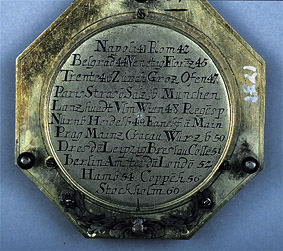 Napoli 41 Rom 42
Belgrad 44 Venetig Florz 45
Trento 46 Zürch Graz Ofen 47
Paris Strasb Salzb München
Landshuedt Ulm Wien 48 Regesp
Nürnb Heidelb 49 Francf a Main
Prag Mainz Cracau Würzb 50
Dresda Leipzig Breslau Colle 51
Berlin Amsterda Londo 52
Hamb 54 Coppeh 56
Stockholm 60